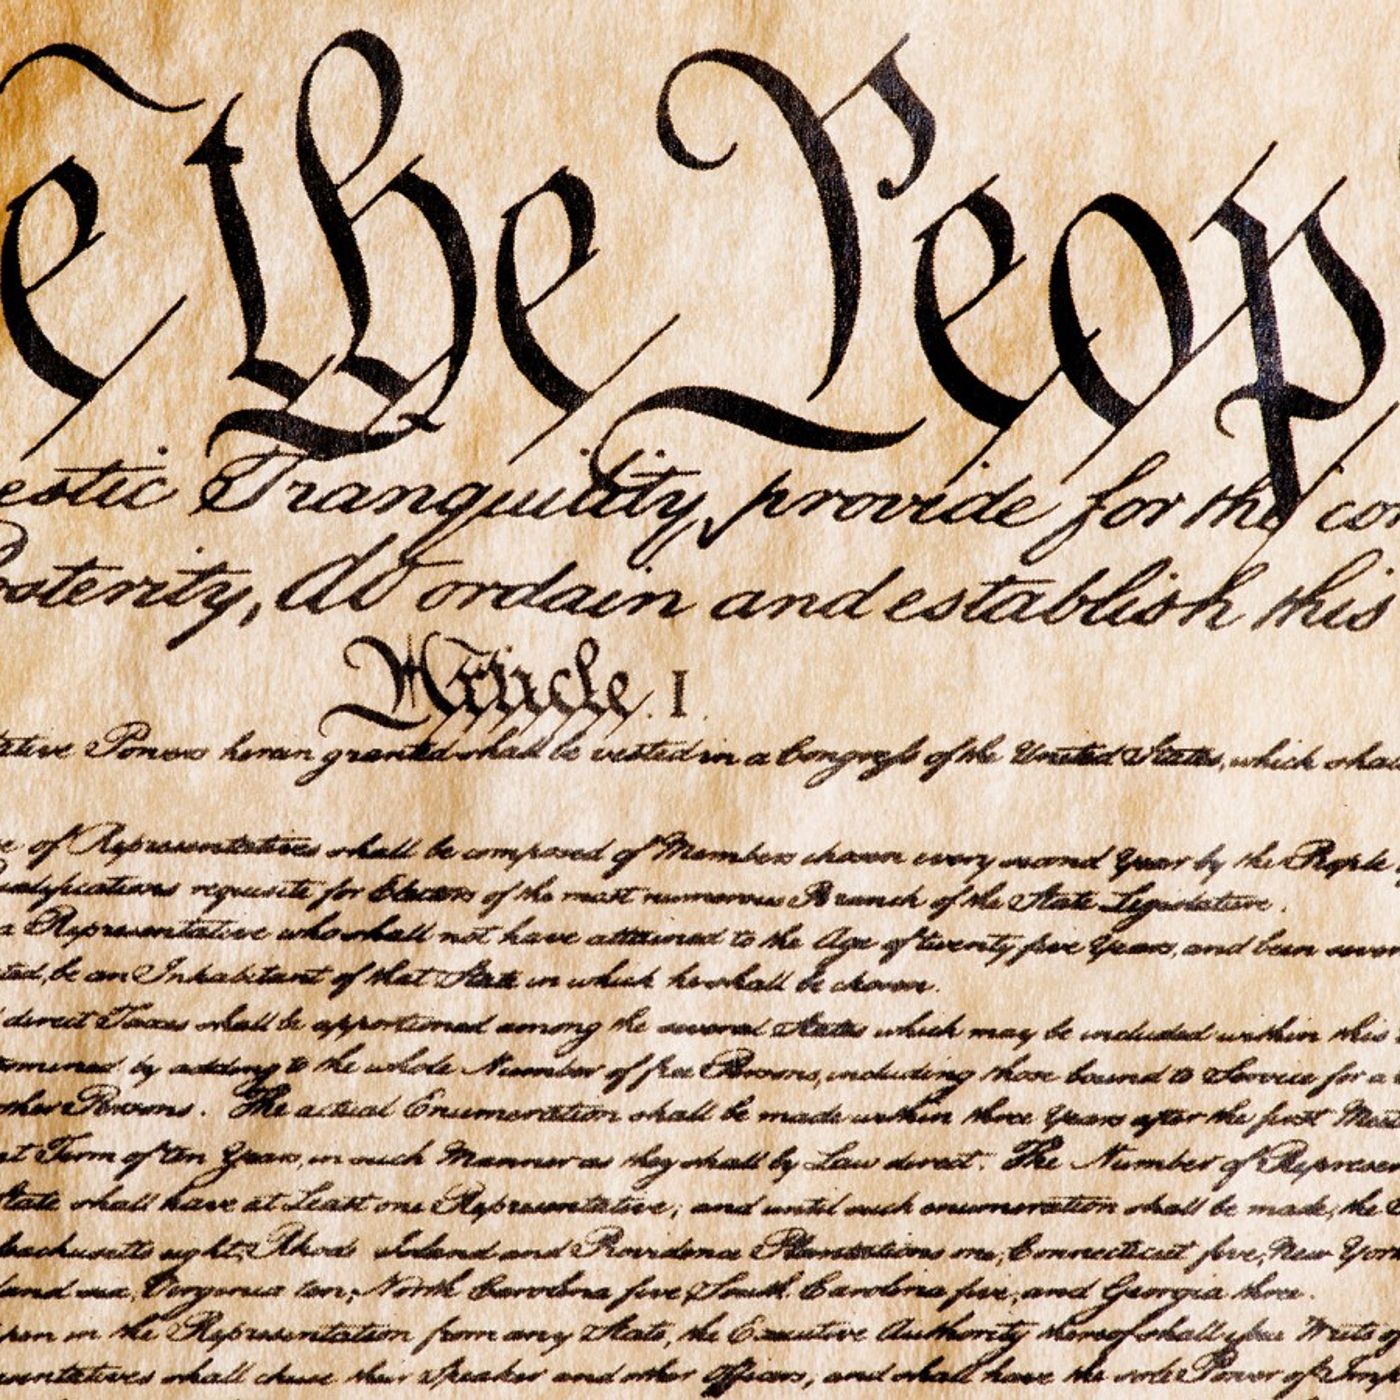 e the Peop
estic Tranquility, provide for the co
osterity, do ordain and establish this
Article. I.
ative Powers herein granted shall be vested in a Congress of the United States, which shal
e of Representatives shall be composed of Members chosen every second Year by the People
ualifications requisite for Electors of the most numerous Branch of the State Legislature.
a Representative who shall not have attained to the Age of twenty five Years, and been seven
ted, be an Inhabitant of that State in which he shall be chosen.
direct Taxes shall be apportioned among the several States which may be included within this
ermined by adding to the whole Number of free Persons, including those bound to Service for a
other Persons. The actual Enumeration shall be made within three Years after the first Meet
nt Term of ten Years, in such Manner as they shall by Law direct. The Number of Represen
State shall have at Least one Representative; and until such enumeration shall be made, the
sachusetts eight, Rhode Island and Providence Plantations one, Connecticut five, New York
land six, Virginia ten, North Carolina five, South Carolina five, and Georgia three.
pen in the Representation from any State, the Executive Authority thereof shall issue Writs of
esentatives shall chuse their Speaker and other Officers, and shall have the sole Power of Imp